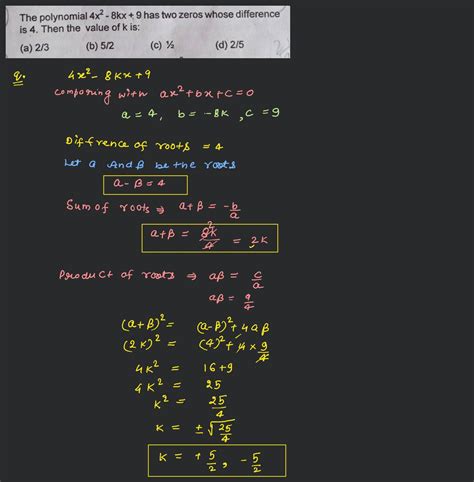 The polynomial 4x² - 8kx + 9 has two zeros whose difference
is 4. Then the value of k is:
(a) 2/3 (b) 5/2 (c) ½ (d) 2/5
Q. 4x² - 8kx + 9
Comparing with ax² + bx + c = 0
a = 4, b = -8k, c = 9
Diffrence of roots = 4
Let α And β be the roots
α - β = 4
Sum of roots ⇒ α + β = -b/a
α + β = 8k/4 = 2k
Product of roots ⇒ αβ = c/a
αβ = 9/4
(α + β)² = (α - β)² + 4αβ
(2k)² = (4)² + 4 × 9/4
4k² = 16 + 9
4k² = 25
k² = 25/4
k = ±√25/4
k = + 5/2, - 5/2